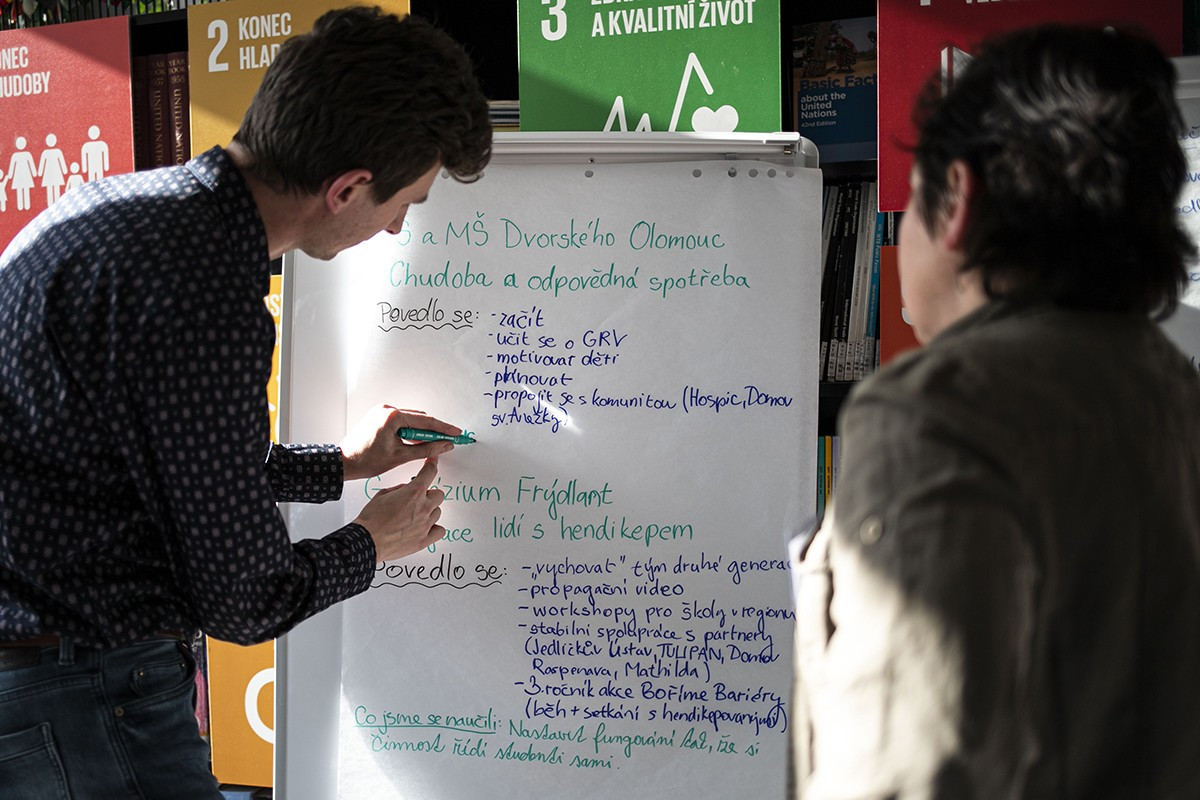 ONEC
HUDOBY
2 KONEC
HLAD
3
A KVALITNÍ ŽIVOT
YEAR BOOK
UNITED NATIONS
Basic Fact
about the
United
Nations
42nd Edition
Š a MŠ Dvorského Olomouc
Chudoba a odpovědná spotřeba
Povedlo se:
- začít
- učit se o GRV
- motivovat děti
- plánovat
- propojit se s komunitou (Hospic, Domov
sv. Anežky)
Frýdlant
lidí s hendikepem
Povedlo se:
- „vychovat" tým druhé generac
- propagační video
- workshopy pro školy v regionu
- stabilní spolupráce s partnery
(Jedličkův Ústav, TULIPAN, Domov
Raspenava, Mathilda)
- 3. ročník akce Boříme Bariéry
(běh + setkání s hendikepovanými)
Co jsme se naučili: Nastavit fungování tak, že si
činnost řídí studenti sami.